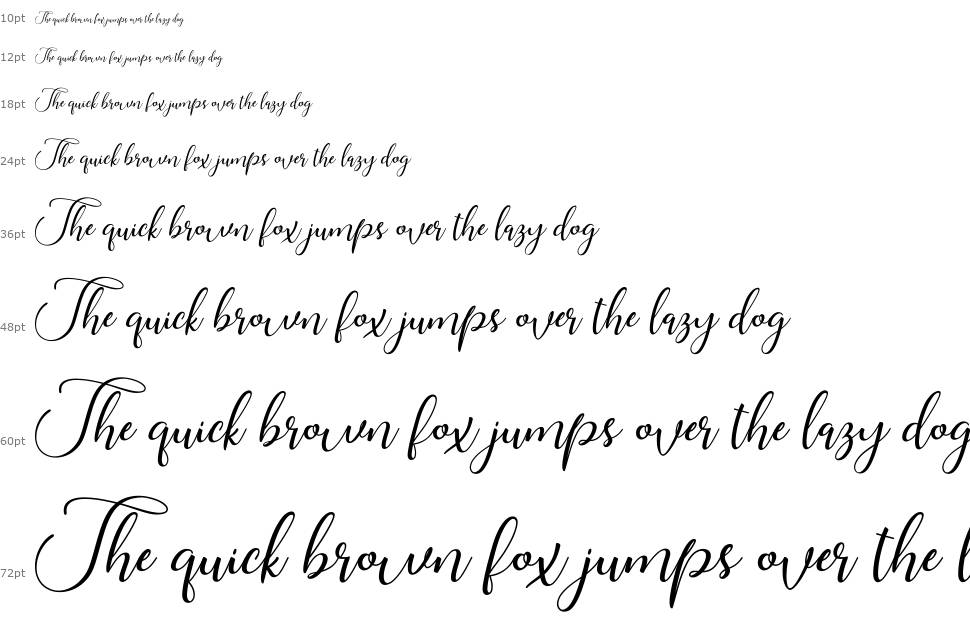 10pt The quick brown fox jumps over the lazy dog
12pt The quick brown fox jumps over the lazy dog
18pt The quick brown fox jumps over the lazy dog
24pt The quick brown fox jumps over the lazy dog
36pt The quick brown fox jumps over the lazy dog
48pt The quick brown fox jumps over the lazy dog
60pt The quick brown fox jumps over the lazy dog
72pt The quick brown fox jumps over the l